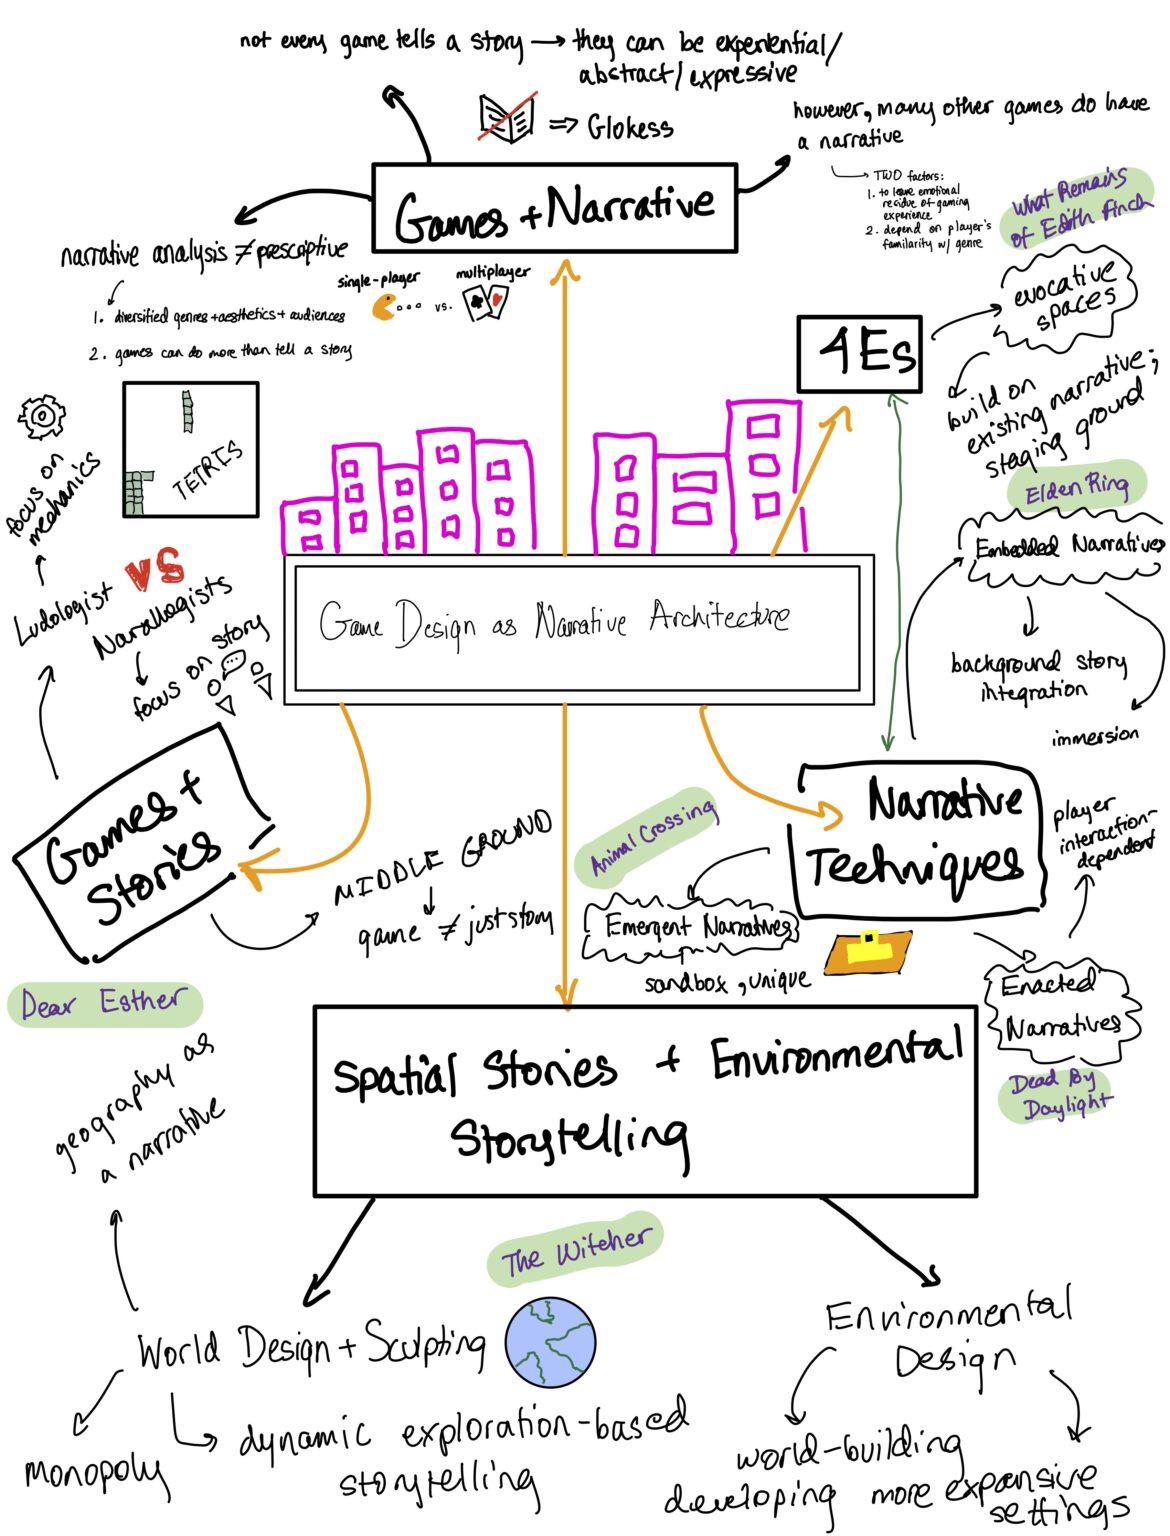 not every game tells a story → they can be experiential/
abstract/expressive
⇒ Glokess
however, many other games do have
a narrative
TWO factors:
1. to leave emotional
residue of gaming
experience
2. depend on player's
familarity w/ genre
Games + Narrative
narrative analysis ≠ prescriptive
1. diversified genres + aesthetics + audiences
2. games can do more than tell a story
single-player
vs.
multiplayer
What Remains
of Edith Finch
evocative
spaces
4Es
build on
existing narrative;
staging ground
Elden Ring
Embedded Narratives
background story
integration
immersion
TETRIS
focus on
mechanics
Ludologist
VS
Narallogists
focus on story
Game Design as Narrative Architecture
Games +
Stories
MIDDLE GROUND
game ≠ just story
Narrative
Techniques
player
interaction-
dependent
Animal Crossing
Emergent Narratives
sandbox, unique
Enacted
Narratives
Dead By
Daylight
Dear Esther
geography as
a narrative
Spatial Stories + Environmental
Storytelling
The Witcher
World Design + Sculpting
Monopoly
dynamic exploration-based
storytelling
Environmental
Design
world-building
developing more expansive
settings